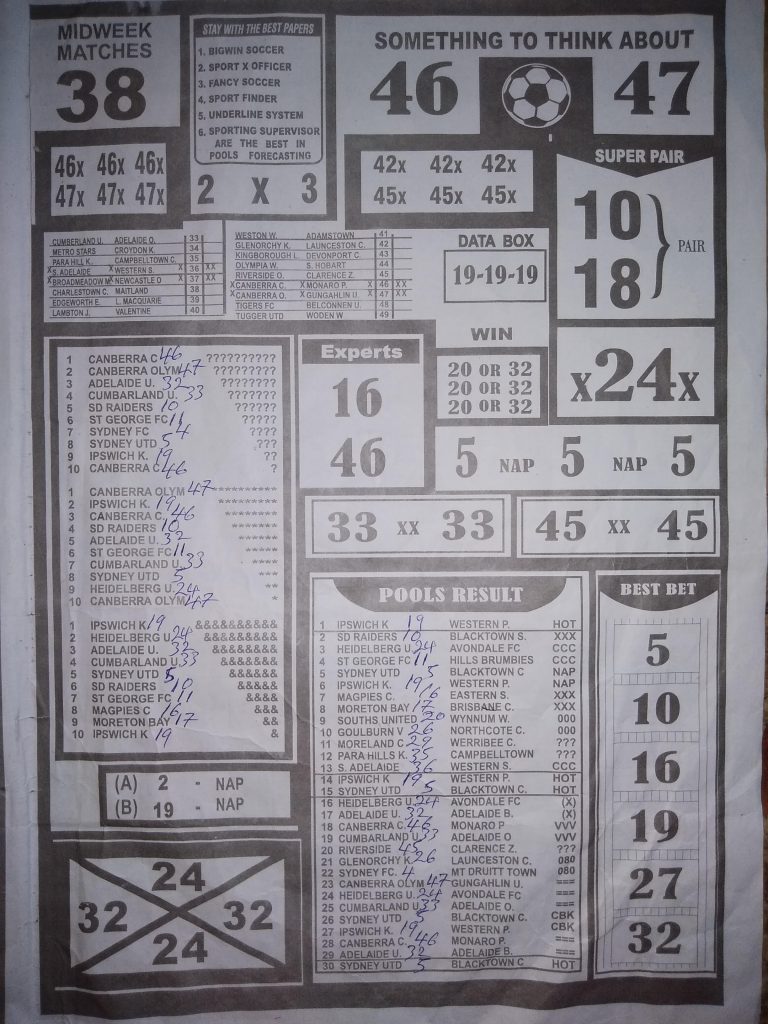 MIDWEEK
MATCHES
38
STAY WITH THE BEST PAPERS
1. BIGWIN SOCCER
2. SPORT X OFFICER
3. FANCY SOCCER
4. SPORT FINDER
5. UNDERLINE SYSTEM
6. SPORTING SUPERVISOR
ARE THE BEST IN
POOLS FORECASTING
2 X 3
SOMETHING TO THINK ABOUT
46 47
46x 46x 46x
47x 47x 47x
42x 42x 42x
45x 45x 45x
SUPER PAIR
10
18
PAIR
CUMBERLAND U. ADELAIDE O. 33
METRO STARS CROYDON K. 34
PARA HILL K. CAMPBELLTOWN C. 35
X S. ADELAIDE X WESTERN S. X 36 XX
X BROADMEADOW M. X NEWCASTLE O X 37 XX
CHARLESTOWN C. MAITLAND 38
EDGEWORTH E. L. MACQUARIE 39
LAMBTON J. VALENTINE 40
WESTON W. ADAMSTOWN 41
GLENORCHY K. LAUNCESTON C. 42
KINGBOROUGH L. DEVONPORT C. 43
OLYMPIA W. S. HOBART 44
RIVERSIDE O. CLARENCE Z. 45
X CANBERRA C. X MONARO P. X 46 XX
X CANBERRA O. X GUNGAHLIN U X 47 XX
TIGERS FC BELCONNEN U. 48
TUGGER UTD WODEN W 49
DATA BOX
19-19-19
WIN
20 OR 32
20 OR 32
20 OR 32
x24x
1 CANBERRA C 46 ??????????
2 CANBERRA OLYM 47 ?????????
3 ADELAIDE U. 32 ????????
4 CUMBARLAND U. 33 ???????
5 SD RAIDERS 10 ??????
6 ST GEORGE FC 11 ?????
7 SYDNEY FC 4 ????
8 SYDNEY UTD 5 ???
9 IPSWICH K. 19 ??
10 CANBERRA C 46 ?
1 CANBERRA OLYM 47 **********
2 IPSWICH K. 19 *********
3 CANBERRA C. 46 ********
4 SD RAIDERS 10 *******
5 ADELAIDE U. 32 ******
6 ST GEORGE FC 11 *****
7 CUMBARLAND U. 33 ****
8 SYDNEY UTD 5 ***
9 HEIDELBERG U. 24 **
10 CANBERRA OLYM 47 *
1 IPSWICH K 19 &&&&&&&&&&
2 HEIDELBERG U. 24 &&&&&&&&&
3 ADELAIDE U. 32 &&&&&&&&
4 CUMBARLAND U. 33 &&&&&&&
5 SYDNEY UTD 5 &&&&&&
6 SD RAIDERS 10 &&&&&
7 ST GEORGE FC 11 &&&&
8 MAGPIES C 16 &&&
9 MORETON BAY 17 &&
10 IPSWICH K 19 &
Experts
16
46
5 NAP 5 NAP 5
33 xx 33
45 xx 45
POOLS RESULT
1 IPSWICH K 19 WESTERN P. HOT
2 SD RAIDERS 10 BLACKTOWN S. XXX
3 HEIDELBERG U. 24 AVONDALE FC CCC
4 ST GEORGE FC 11 HILLS BRUMBIES CCC
5 SYDNEY UTD 5 BLACKTOWN C NAP
6 IPSWICH K. 19 WESTERN P. NAP
7 MAGPIES C. 16 EASTERN S. XXX
8 MORETON BAY 17 BRISBANE C. XXX
9 SOUTHS UNITED 20 WYNNUM W. 000
10 GOULBURN V 26 NORTHCOTE C. 000
11 MORELAND C 29 WERRIBEE C. ???
12 PARA HILLS K. 35 CAMPBELLTOWN ???
13 S. ADELAIDE 36 WESTERN S. CCC
14 IPSWICH K 19 WESTERN P. HOT
15 SYDNEY UTD 5 BLACKTOWN C. HOT
16 HEIDELBERG U. 24 AVONDALE FC (X)
17 ADELAIDE U. 32 ADELAIDE B. (X)
18 CANBERRA C. 46 MONARO P VVV
19 CUMBARLAND U. 33 ADELAIDE O VVV
20 RIVERSIDE 45 CLARENCE Z. ???
21 GLENORCHY K. 26 LAUNCESTON C. 080
22 SYDNEY FC. 4 MT DRUITT TOWN 080
23 CANBERRA OLYM 47 GUNGAHLIN U. ===
24 HEIDELBERG U. 24 AVONDALE FC ===
25 CUMBARLAND U. 33 ADELAIDE O. ===
26 SYDNEY UTD BLACKTOWN C. CBK
27 IPSWICH K. 19 WESTERN P. CBK
28 CANBERRA C. 46 MONARO P. ===
29 ADELAIDE U. 32 ADELAIDE B. ===
30 SYDNEY UTD 5 BLACKTOWN C HOT
BEST BET
5
10
16
19
27
32
(A) 2 - NAP
(B) 19 - NAP
24
32 32
24